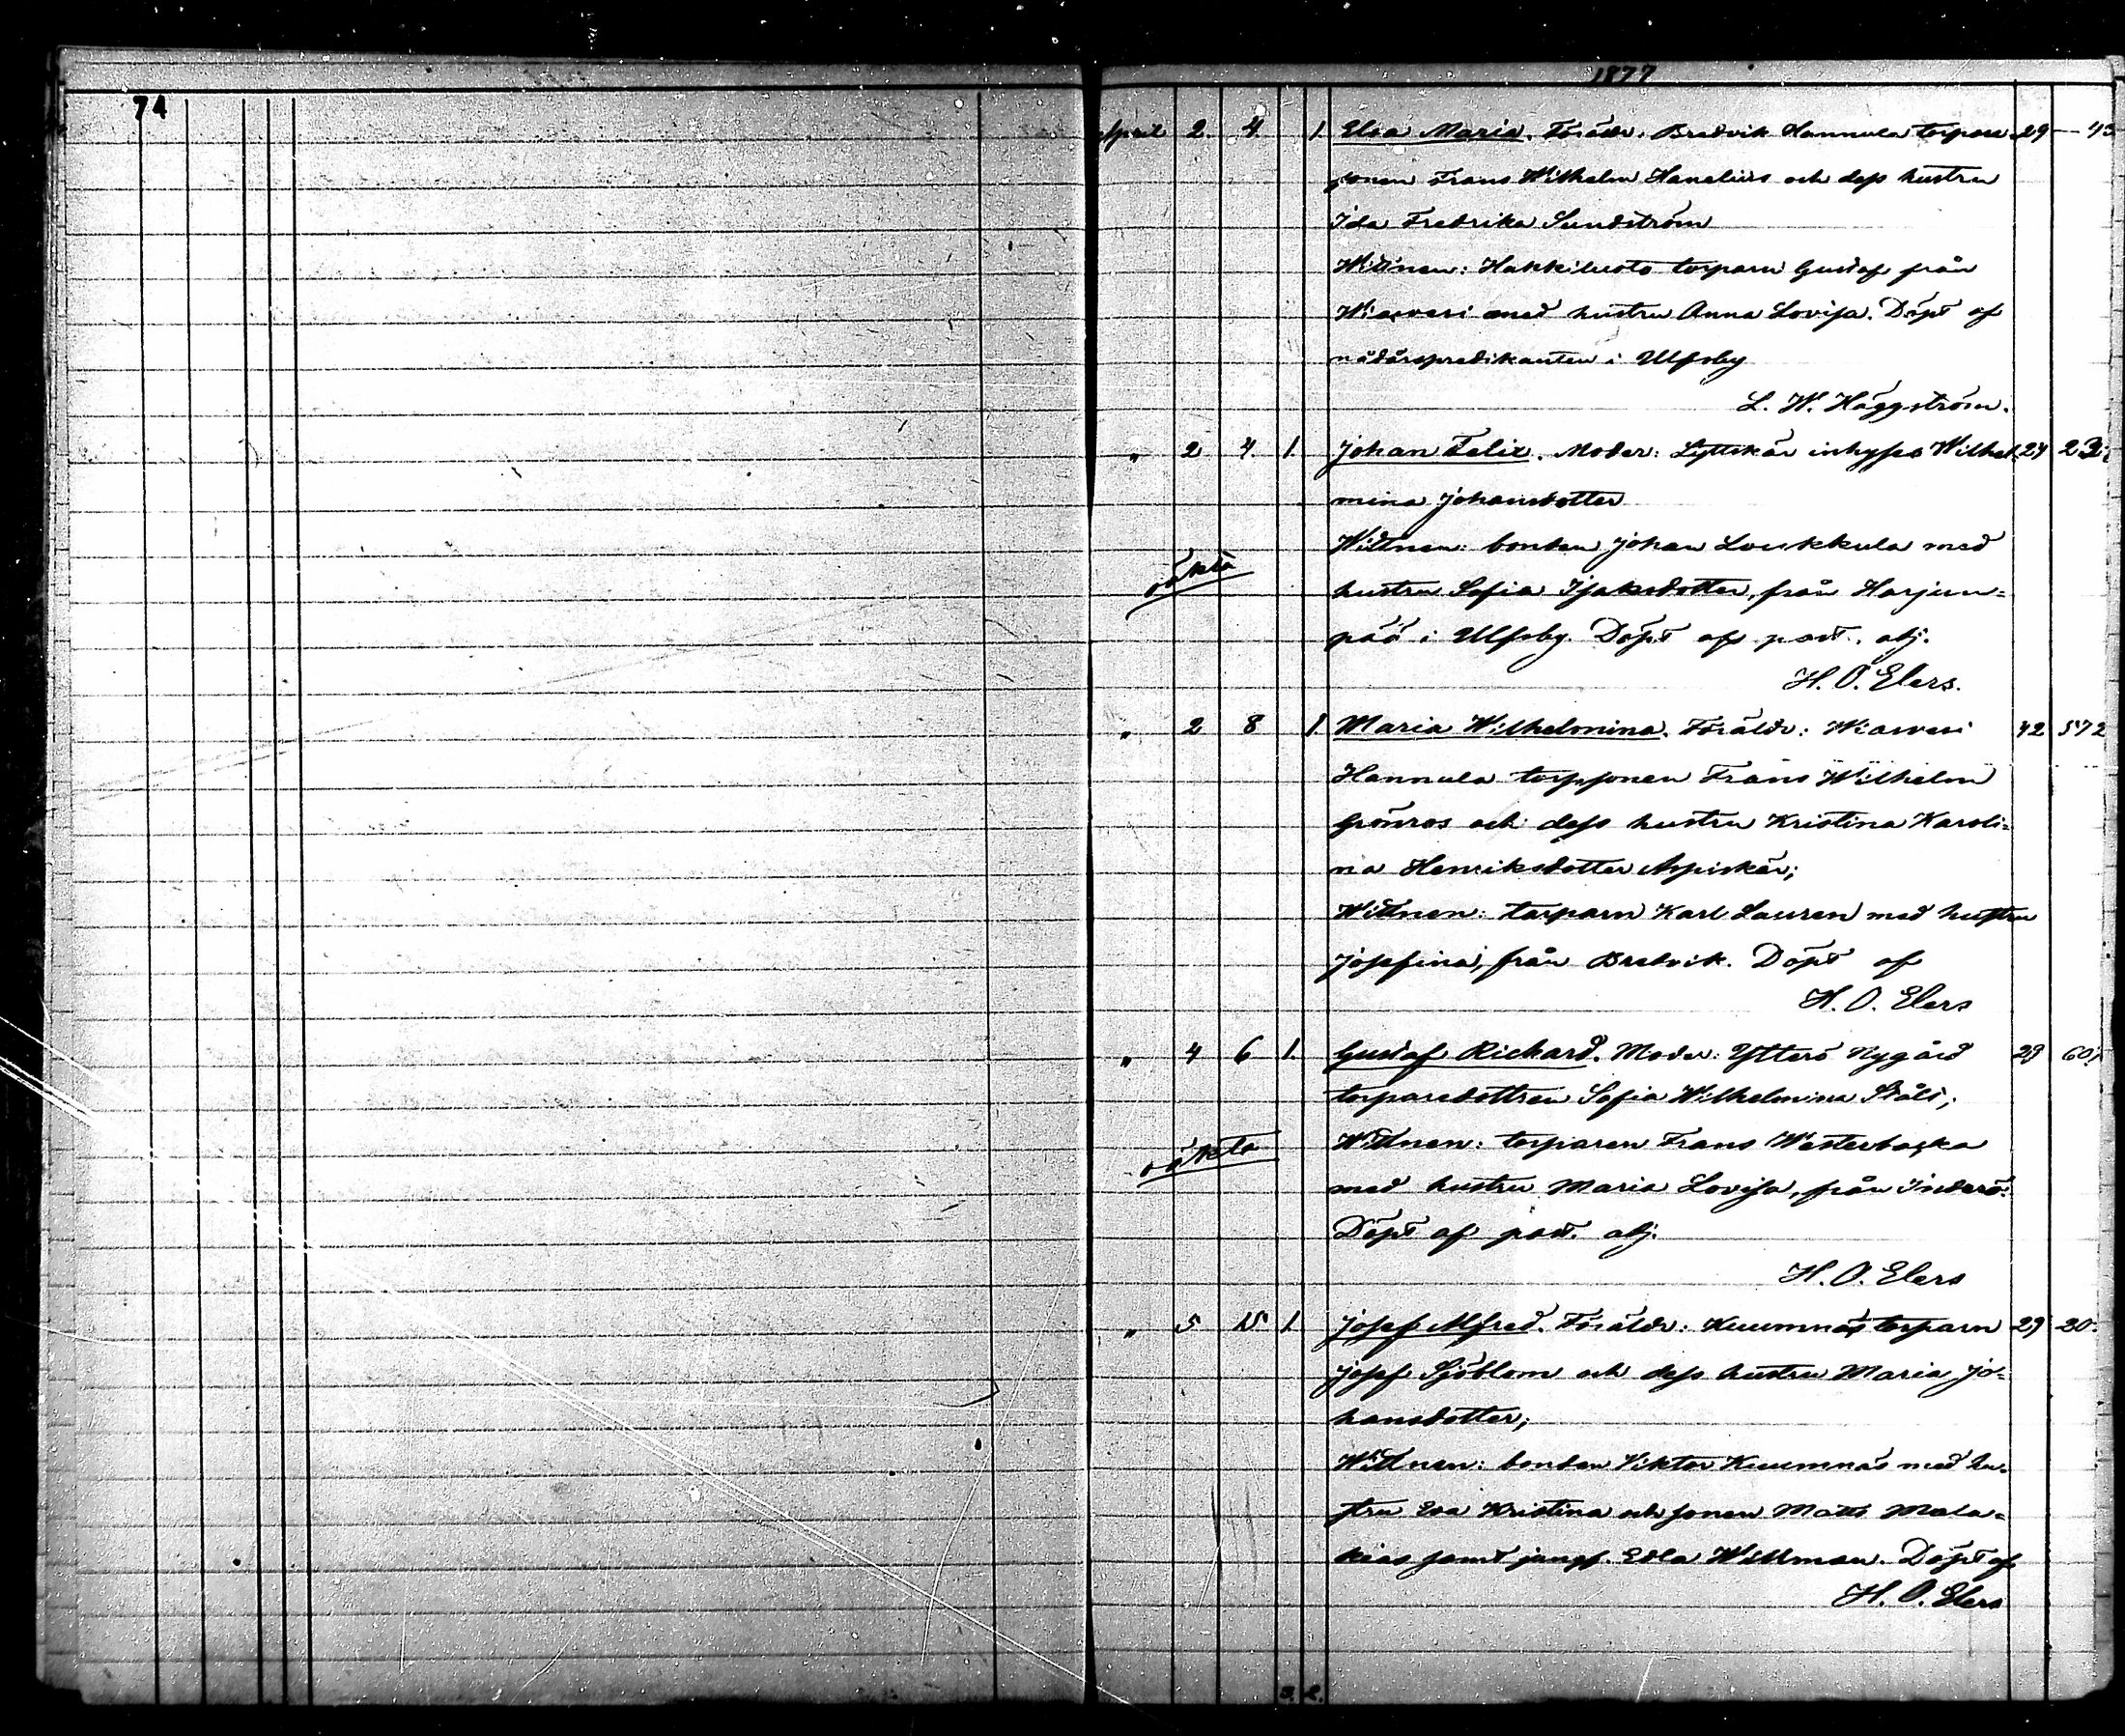 1877
74
April 2. 4. 1. Elsa Maria. Föräldr. Bredvik Hannula torpare 29
sonen Frans Wilhelm Hanelius och dess hustru
Ida Fredrika Sundström
Wittnen: Hakkiluoto torparn Gustaf från
Wiasvesi med hustru Anna Lovisa. Döpt af
nådårspredikanten i Ulfsby
L. W. Häggström.
" 2 4. 1. Johan Felix. Moder: Lyttskär inhyses Wilhel- 29
mina Johansdotter
Wittnen: bonden Johan Loukkula med
oäkta
hustru Sofia Isaksdotter, från Harjun=
pää i Ulfsby. Döpt af past. adj.
H. O. Elers.
" 2 8 1 Maria Wilhelmina. Föräldr: Wiasvesi 42 572
Hannula torpsonen Frans Wilhelm
Grönros och dess hustru Kristina Karoli=
na Henriksdotter Aspiskär;
Wittnen: torparn Karl Lauren med hustru
Josefina, från Bredvik. Döpt af
H. O. Elers
" 4 6 1. Gustaf Richard. Moder: Ytterö Nygård 29
torparedottren Sofia Wilhelmina Ståls;
oäkta
Wittnen: torparen Frans Westerbacka
med hustru Maria Lovisa, från Inderö.
Döpt af past. adj.
H. O. Elers
" 5 15 1. Josef Alfred. Föräldr: Kuumnäs torparn 29 20.
Josef Sjöblom och dess hustru Maria Jo=
hansdotter;
Wittnen: bonden Viktor Kuumnäs med hu=
stru Eva Kristina och sonen Matts Mala=
kias samt jungf. Edla Willman. Döpt af
H. O. Elers
3. 2.